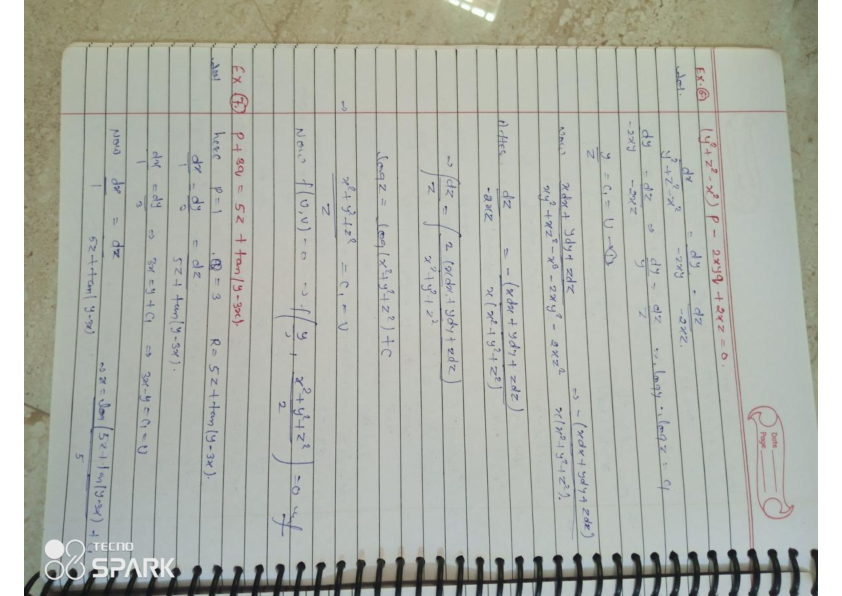 Date:
Page:
Ex.⑥ (y²+z²-x²) p - 2xyq + 2xz = 0.
sol. dx/y²+z²-x² = dy/-2xy = dz/-2xz.
dy/-2xy = dz/-2xz ⇒ dy/y = dz/z ⇒ log y - log z = c₁
y/z = c₁ = U -①
Now xdx + ydy + zdz / xy²+xz²-x³-2xy²-2xz² ⇒ -(xdx+ydy+zdz) / x(x²+y²+z²).
dz/-2xz = -(xdx+ydy+zdz) / x(x²+y²+z²)
⇒ ∫dz/z = ∫2(xdx+ydy+zdz) / x²+y²+z²
log z = log(x²+y²+z²) + c
⇒ x²+y²+z²/z = c₁ = v
Now f(U,V)=0 ⇒ f(y/z, x²+y²+z²/z) = 0
Ex ⑦. p + 3q = 5z + tan(y-3x)
sol here p = 1 , Q = 3 R = 5z + tan(y-3x).
dx/1 = dy/3 = dz/5z + tan(y-3x).
dx/1 = dy/3 ⇒ 3x = y + c₁ ⇒ 3x-y = c₁ = U
Now dx/1 = dz/5z + tan(y-3x) ⇒ x = log(5z + tan(y-3x)/5 +
TECNO
SPARK